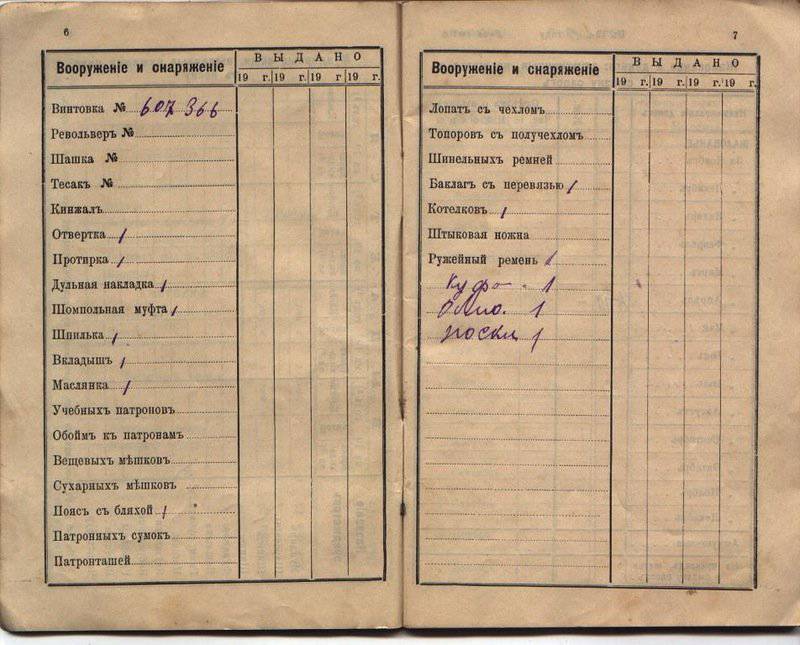 6
Вооруженіе и снаряженіе
ВЫДАНО
19 г. 19 г. 19 г 19 г.
Винтовка № 607366
Револьверъ №
Шашка №
Тесакъ №
Кинжалъ
Отвертка 1
Протирка 1
Дульная накладка 1
Шомпольная муфта 1
Шпилька 1
Вкладышъ 1
Маслянка 1
Учебныхъ патроновъ
Обоймъ къ патронамъ
Вещевыхъ мѣшковъ
Сухарныхъ мѣшковъ
Поясъ съ бляхой 1
Патронныхъ сумокъ
Патронташей
7
Вооруженіе и снаряженіе
ВЫДАНО
19 г. 19 г. 19 г. 19 г.
Лопатъ съ чехломъ
Топоровъ съ получехломъ
Шинельныхъ ремней
Баклагъ съ перевязью 1
Котелковъ 1
Штыковая ножна
Ружейный ремень 1
1
1
носки 1